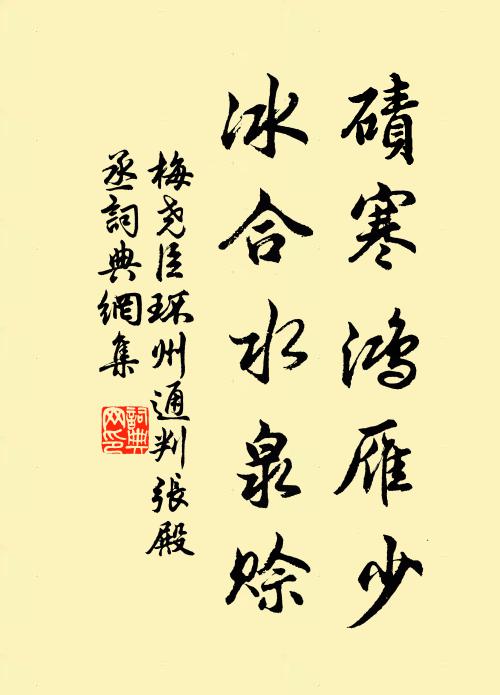 磧寒鴻雁少
冰合水泉賒
梅堯臣環州通判張殿
丞詞典網集
詞典
网印